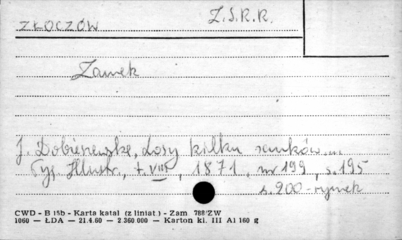 ZŁOCZÓW Z.S.R.R.
Zamek
J. Dobieszewski, Losy kilku zamków...
Tyg. Illustr., t. VIII, 1871, nr 199, s. 195
s. 200 - rynek
CWD - B 15b - Karta katal (z liniat.) - Zam 788/ZW
1060 — ŁDA — 21.4.60 — 2 360 000 — Karton kl. III A1 160 g